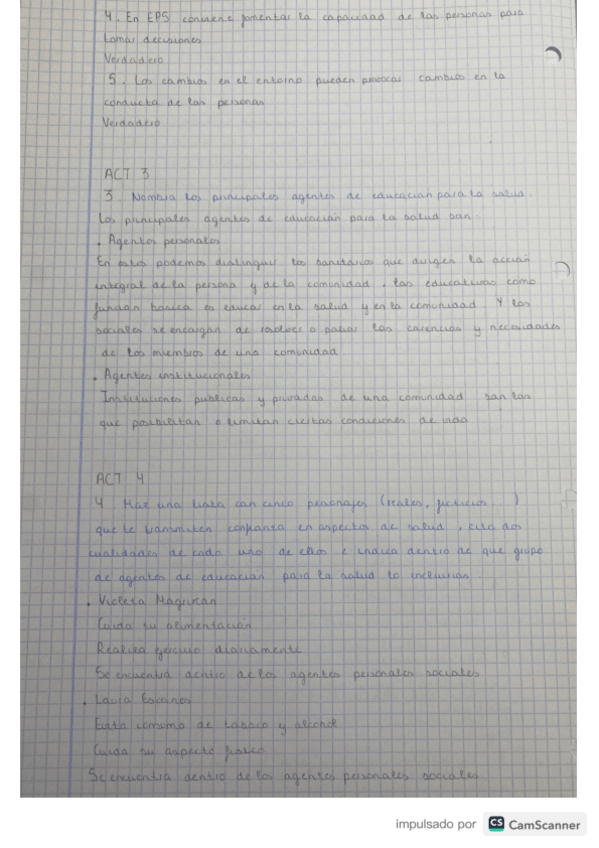 4. En EPS conviene fomentar la capacidad de las personas para
tomar decisiones
Verdadero
5. Los cambios en el entorno pueden provocar cambios en la
conducta de las personas
Verdadero
ACT 3
3 Nombra los principales agentes de educación para la salud.
Los principales agentes de educación para la salud son:
. Agentes personales
En estos podemos distinguir los sanitarios que dirigen la acción
integral de la persona y de la comunidad, los educativos como
función básica es educar en la salud y en la comunidad Y los
sociales se encargan de o paliar las carencias y necesidades
de los miembros de una comunidad
. Agentes institucionales
Instituciones publicas y privadas de una comunidad son las
que posibilitan o limitan ciertas condiciones de vida
ACT 4
4 Haz una lista con cinco personajes (reales, ficticios )
que te transmiten confianza en aspectos de salud, cita dos
cualidades de cada uno de ellos e indica dentro de que grupo
de agentes de educación para la salud lo incluirias
. Violeta
Cuida su alimentación
Realiza ejercicio diariamente
Se encuentra dentro de los agentes personales sociales
. Laura Escanes
Evita consumo de tabaco y alcohol
Cuida su aspecto fisico
Se encuentra dentro de los agentes personales sociales
impulsado por CS CamScanner